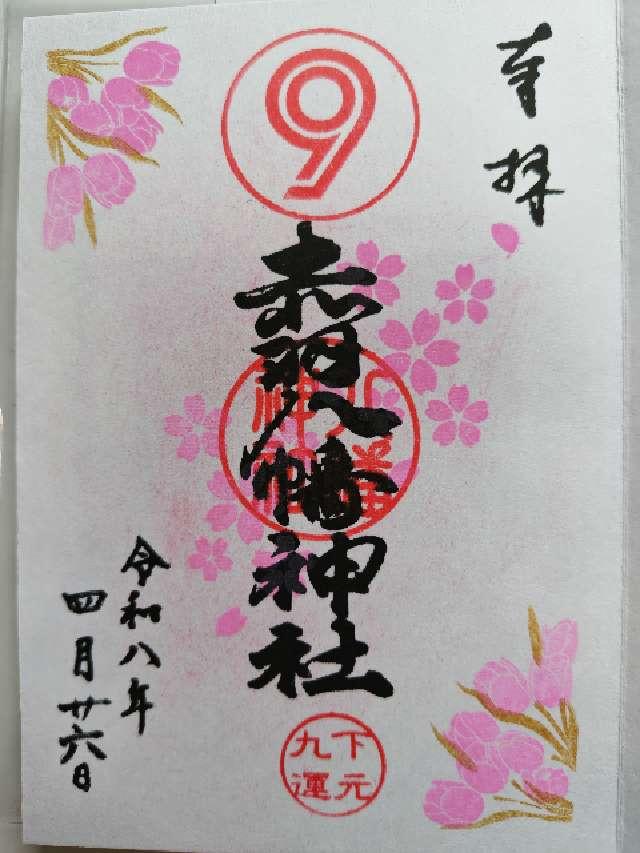 奉拝
9
赤羽八幡神社
八幡
神社
下元
九運
令和八年
四月廿六日